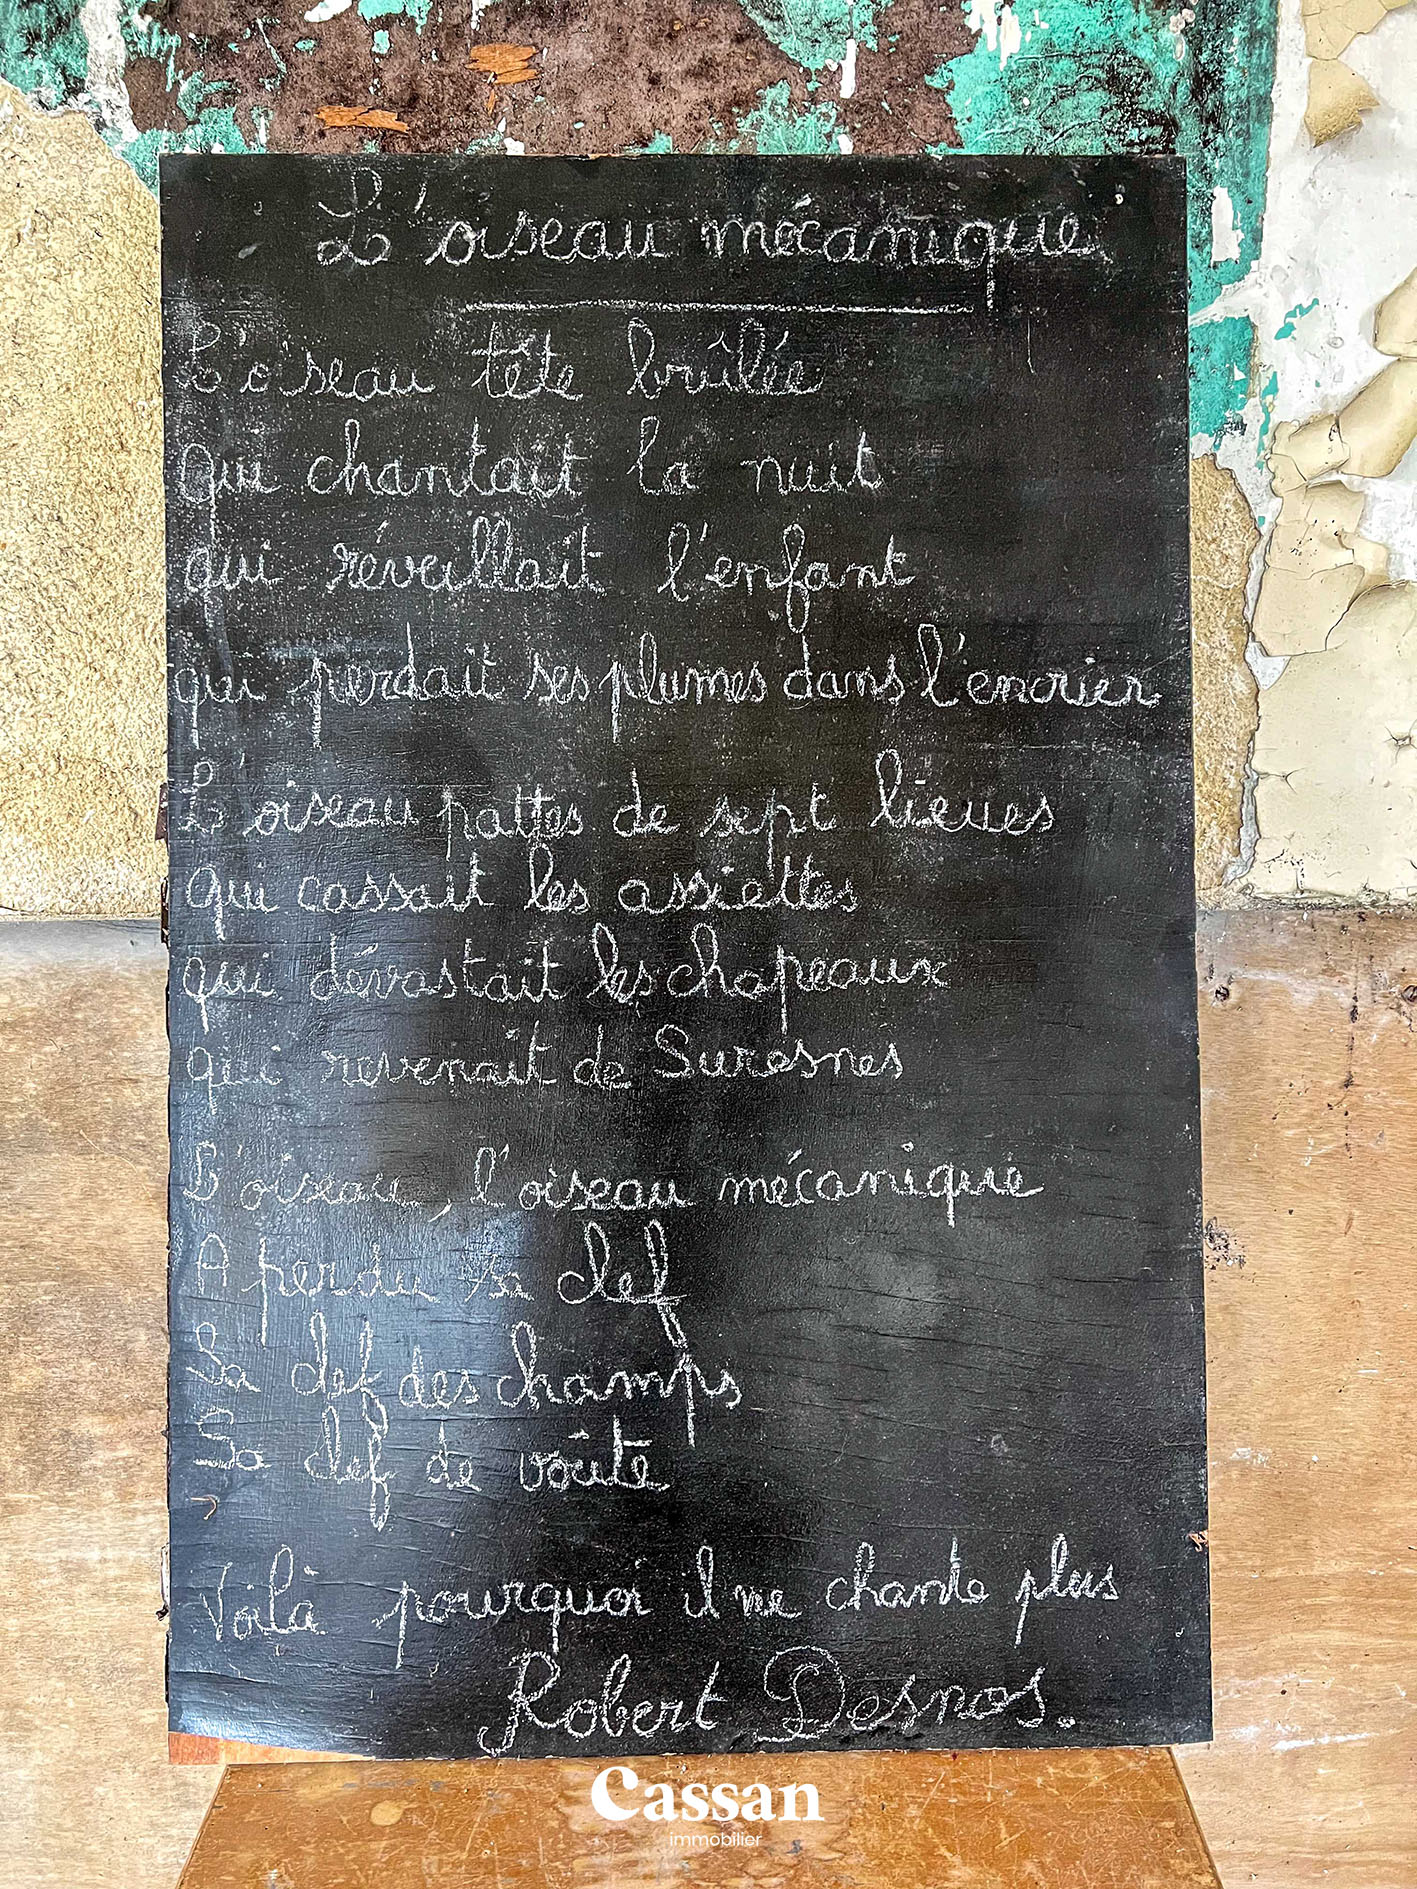 L'oiseau mécanique
L'oiseau tête brûlée
qui chantait la nuit
qui réveillait l'enfant
qui perdait ses plumes dans l'encrier
L'oiseau pattes de sept lieues
qui cassait les assiettes
qui dévastait les chapeaux
qui revenait de Suresnes
L'oiseau, l'oiseau mécanique
A perdu sa clef
Sa clef des champs
Sa clef de voûte
Voilà pourquoi il ne chante plus
Robert Desnos.
Cassan
immobilier